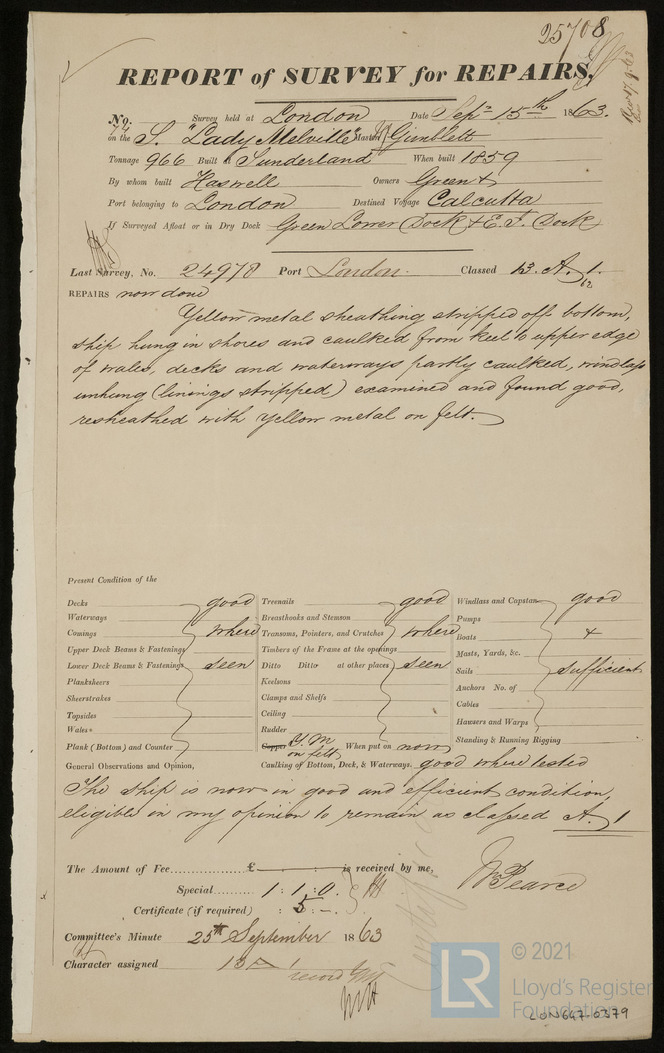 25708
REPORT of SURVEY for REPAIRS.
No. Survey held at London Date Sepr 15th 1863.
on the S. "Lady Melville" Master Gimblett
Tonnage 966 Built at Sunderland When built 1859
By whom built Haswell Owners Green &
Port belonging to London Destined Voyage Calcutta
If Surveyed Afloat or in Dry Dock Green Lower Dock & E. I. Dock
Last Survey, No. 24978 Port London. Classed 13. A. 1.
62
REPAIRS now done
Yellow metal sheathing stripped off bottom,
ship hung in shores and caulked from keel to upper edge
of wales, decks and waterways partly caulked, windlass
unhung (linings stripped) examined and found good,
resheathed with yellow metal on felt.
Present Condition of the
Decks good Treenails good Windlass and Capstan good
Waterways Breasthooks and Stemson Pumps
Comings where Transoms, Pointers, and Crutches where Boats 4
Upper Deck Beams & Fastenings Timbers of the Frame at the openings Masts, Yards, &c.
Lower Deck Beams & Fastenings seen Ditto Ditto at other places seen Sails sufficient
Planksheers Keelsons Anchors No. of
Sheerstrakes Clamps and Shelfs Cables
Topsides Ceiling Hawsers and Warps
Wales Rudder Standing & Running Rigging
Plank (Bottom) and Counter Copper Y. M. on felt When put on now
General Observations and Opinion, Caulking of Bottom, Deck, & Waterways. good where tested
The ship is now in good and efficient condition,
eligible in my opinion to remain as classed A. 1
The Amount of Fee £ : : is received by me,
Special 1 : 1 : 0.
Certificate (if required) : 5 : -.
Wm Pearce
Committee's Minute 25th September 1863
Character assigned 13 A 1
record
Certificate
LR
© 2021
Lloyd's Register
Foundation
LON647-0379